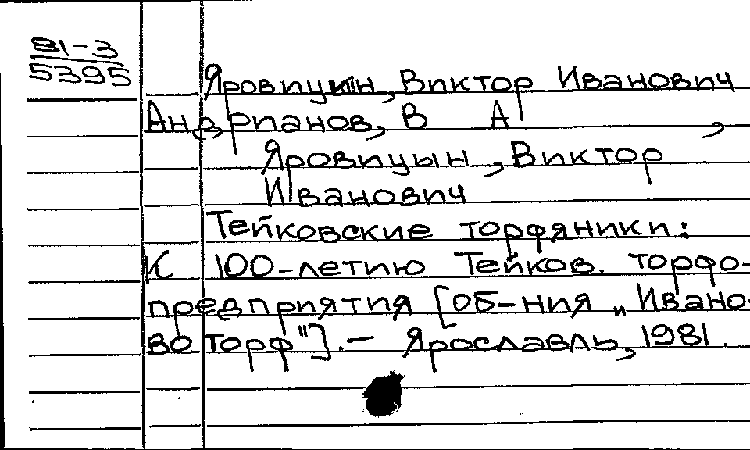 81-3
5395
Яровицын, Виктор Иванович
Андрианов, В А ,
Яровицын, Виктор
Иванович
Тейковские торфяники:
К 100-летию Тейков. торфо-
предприятия [об-ния „Ивано-
во торф"]. - Ярославль, 1981.